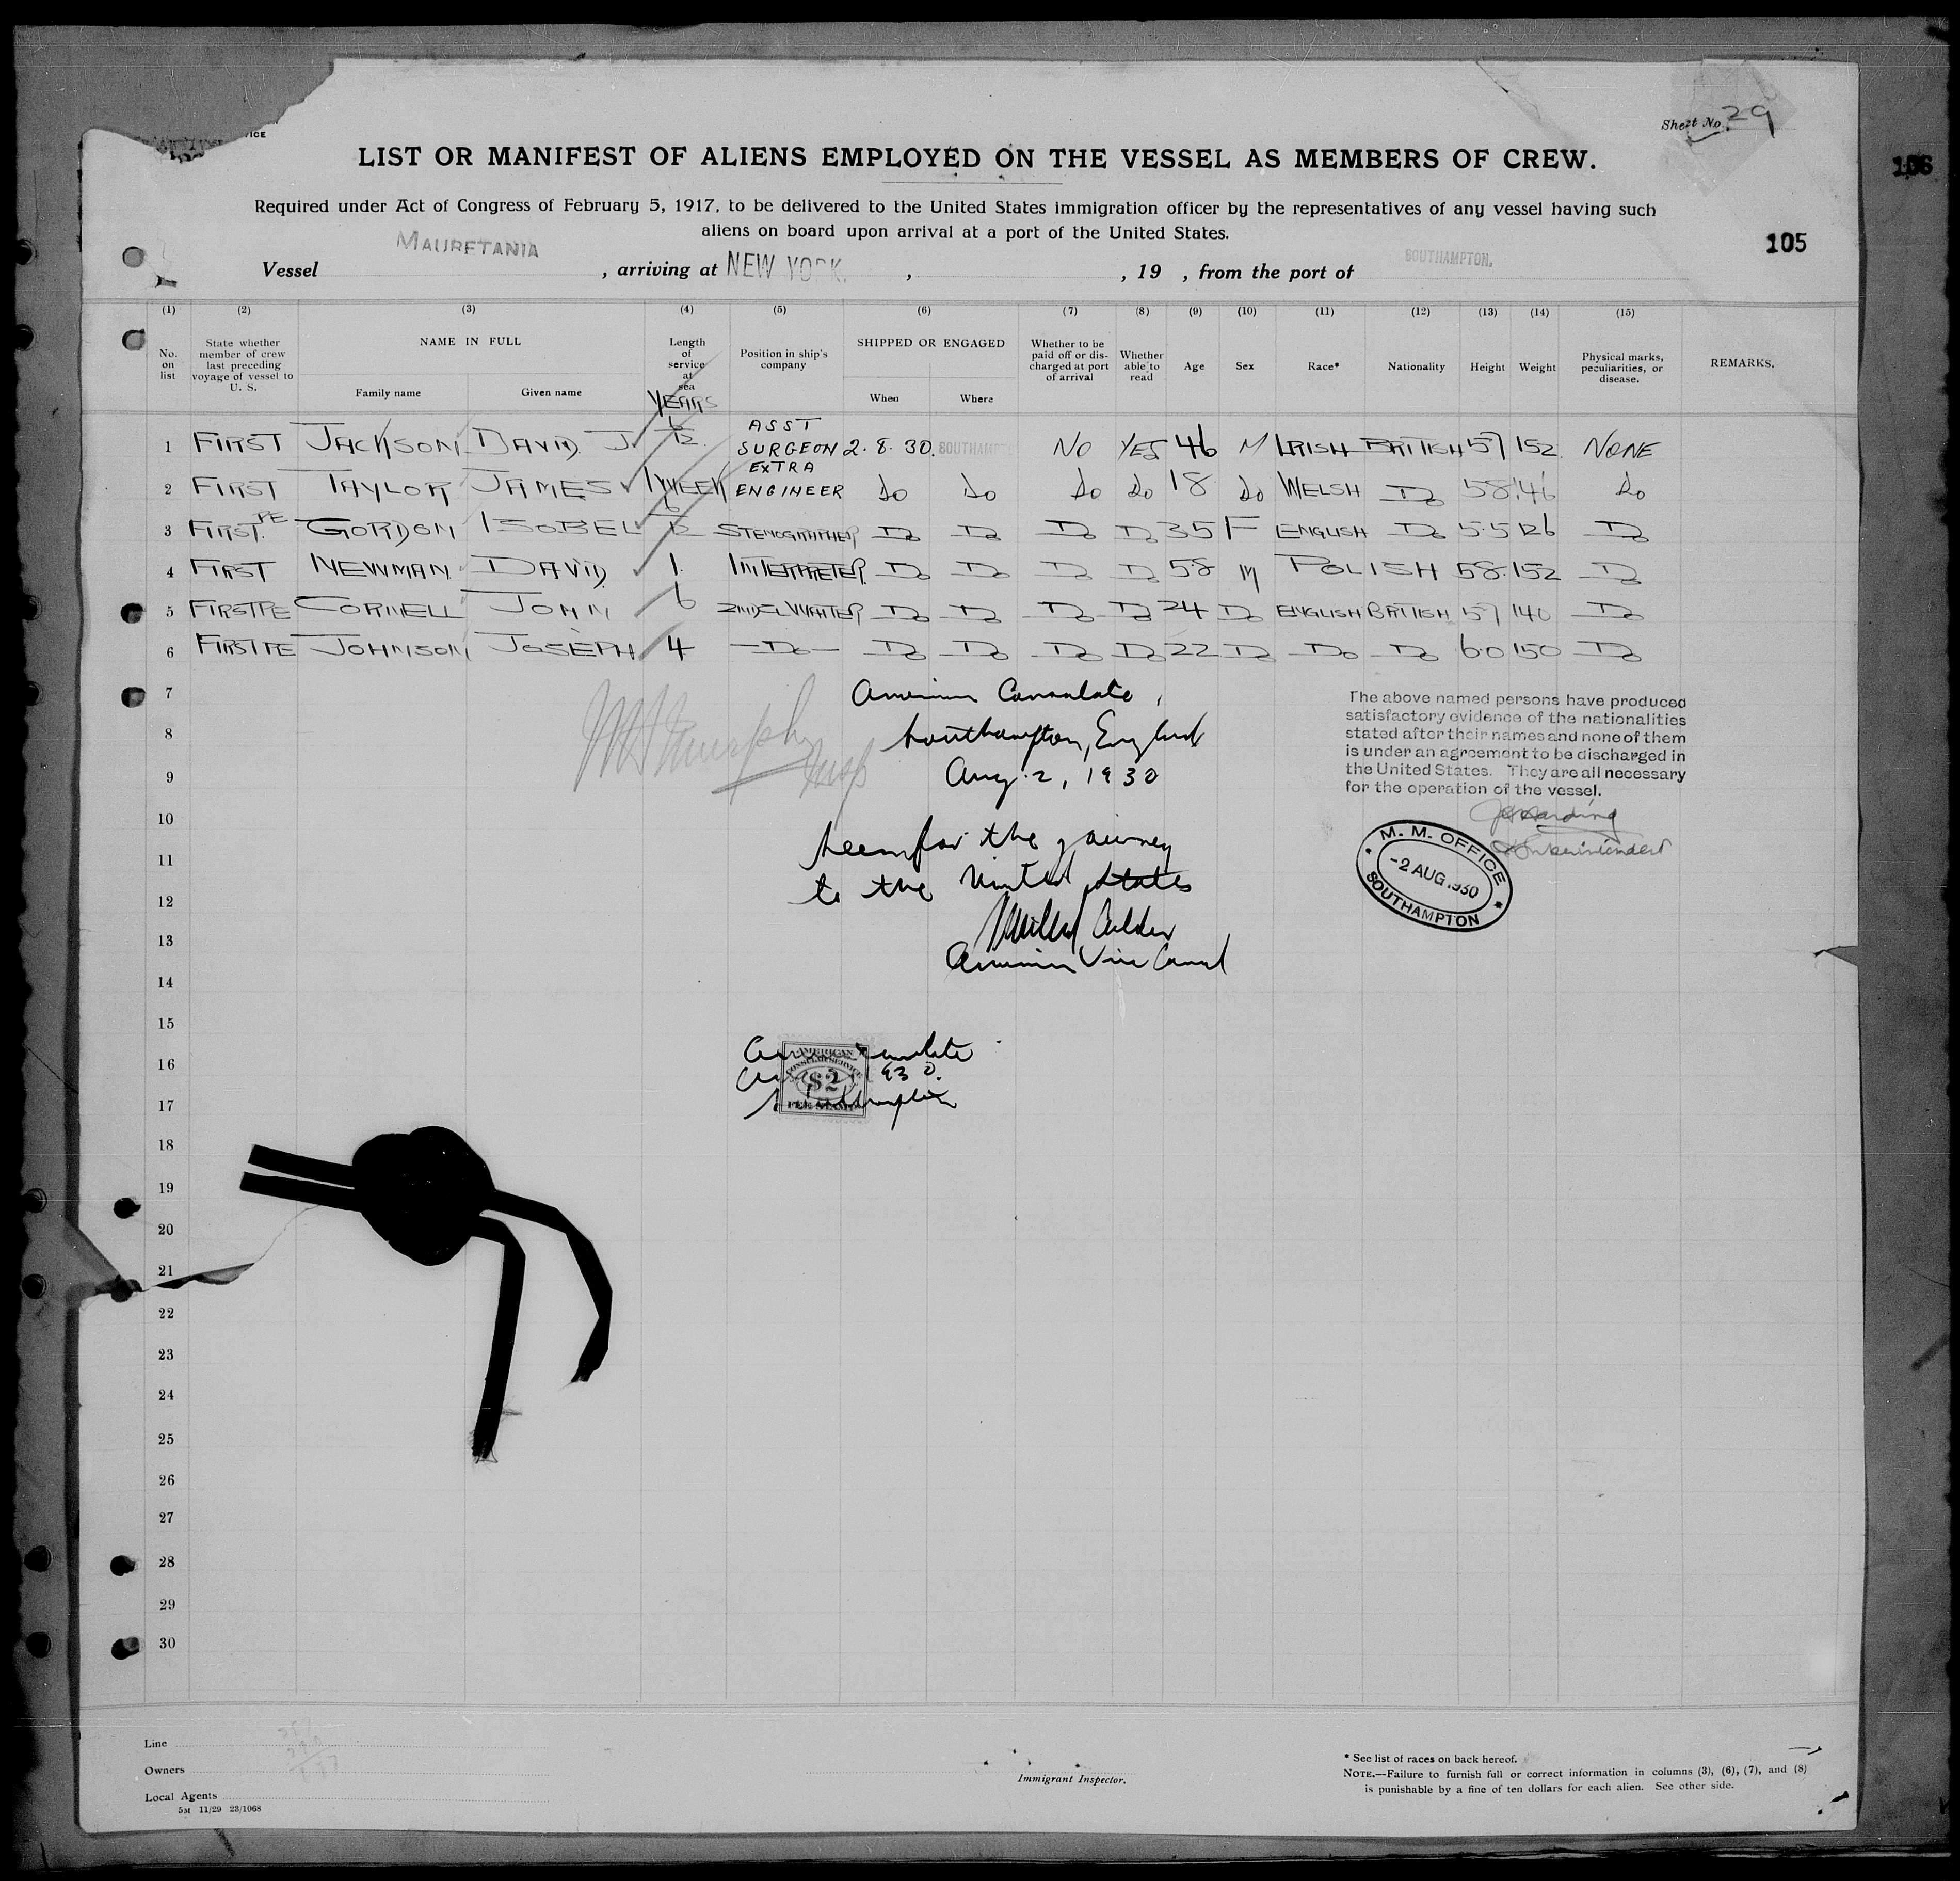 VICE
Sheet No. 29
LIST OR MANIFEST OF ALIENS EMPLOYED ON THE VESSEL AS MEMBERS OF CREW.
106
Required under Act of Congress of February 5, 1917, to be delivered to the United States immigration officer by the representatives of any vessel having such
aliens on board upon arrival at a port of the United States.
105
Vessel MAURETANIA , arriving at NEW YORK. , , 19 , from the port of SOUTHAMPTON.
(1) (2) (3) (4) (5) (6) (7) (8) (9) (10) (11) (12) (13) (14) (15)
No. on list
State whether member of crew last preceding voyage of vessel to U. S.
NAME IN FULL
Family name Given name
Length of service at sea
YEARS
Position in ship's company
SHIPPED OR ENGAGED
When Where
Whether to be paid off or discharged at port of arrival
Whether able to read
Age
Sex
Race*
Nationality
Height
Weight
Physical marks, peculiarities, or disease.
REMARKS.
1 FIRST JACKSON DAVID J. 1/12 ASST SURGEON 2.8.30. SOUTHAMPTON NO YES 46 M IRISH BRITISH 57 152 NONE
2 FIRST TAYLOR JAMES 1 WEEK EXTRA ENGINEER do do do do 18 do WELSH Do 58 146 do
3 FIRST PE GORDON ISOBEL STENOGRAPHER Do Do Do Do 35 F ENGLISH Do 5.5 126 Do
4 FIRST NEWMAN DAVID 1. INTERPRETER Do Do Do Do 58 M POLISH 58. 152 Do
5 FIRST PE CORNELL JOHN 6 Do Do Do Do 24 Do ENGLISH BRITISH 57 140 Do
6 FIRST PE JOHNSON JOSEPH 4 Do Do Do Do Do 22 Do Do Do 6.0 150 Do
7
8
9
10
11
12
13
14
15
16
17
18
19
20
21
22
23
24
25
26
27
28
29
30
American Consulate,
Southampton, England
Aug. 2, 1930
Seen for the journey
to the United States
American Vice Consul
Murphy
Insp
The above named persons have produced
satisfactory evidence of the nationalities
stated after their names and none of them
is under an agreement to be discharged in
the United States. They are all necessary
for the operation of the vessel.
Harding
Superintendent
M. M. OFFICE
-2 AUG 1930
SOUTHAMPTON
AMERICAN
CONSULAR SERVICE
$2
FEE STAMP
Line
Owners
Local Agents
5M 11/29 23/1068
Immigrant Inspector.
* See list of races on back hereof.
NOTE.—Failure to furnish full or correct information in columns (3), (6), (7), and (8)
is punishable by a fine of ten dollars for each alien. See other side.